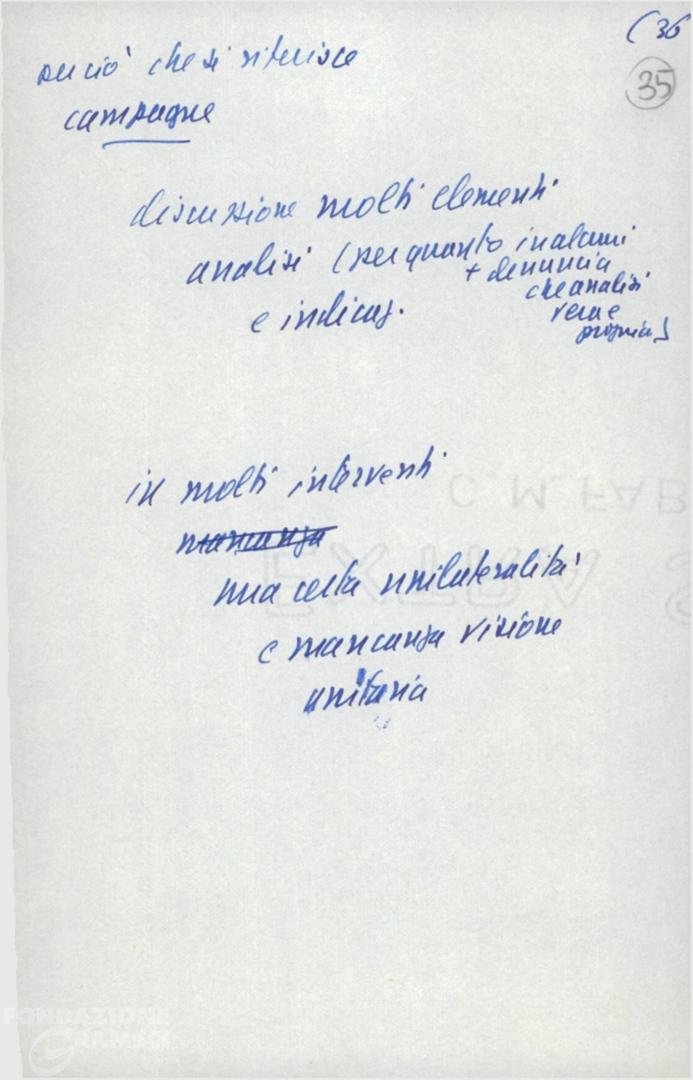 (36
35
per ciò che si riferisce
campagne
discussione molti elementi
analisi (per quanto in alcuni
+ denuncia
che analisi
vera e
propria)
e indicaz.
in molti interventi
mancanza
una certa unilateralità
e mancanza visione
unitaria
C. M. FAB
EXTRA S
FONDAZIONE
GRAMSCI